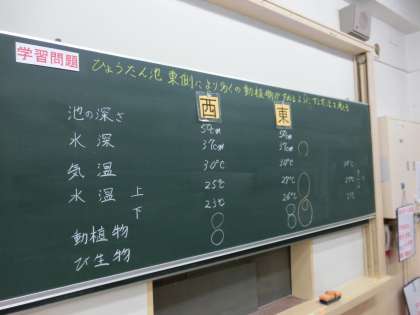 学習問題
ひょうたん池 東側により多くの動植物が
西 東
池の深さ 50cm 50cm
水深 37cm 37cm
気温 30℃ 30℃
水温 上 25℃ 27℃
下 23℃ 26℃
動植物 8 8
び生物